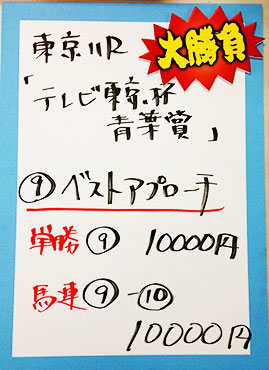 東京11R
大勝負
「テレビ東京杯
青葉賞」
⑨ベストアプローチ
単勝⑨ 10000円
馬連⑨-⑩
10000円